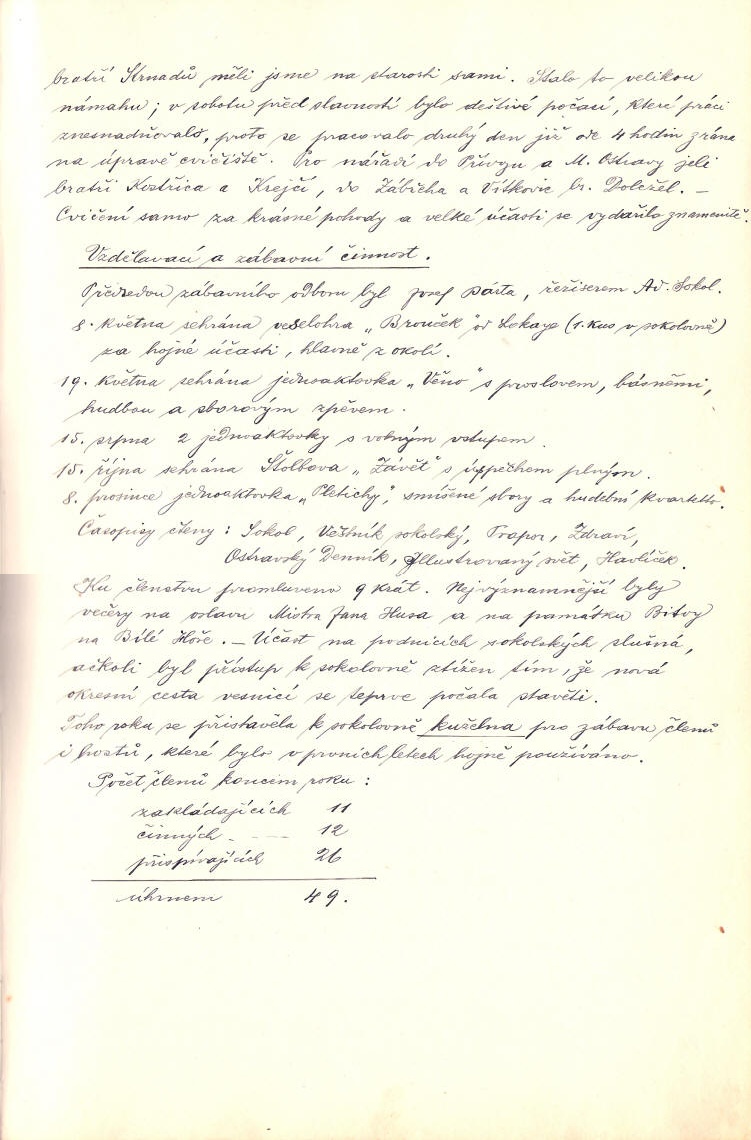 bratří Strnadů měli jsme na starosti sami. Stálo to velikou
námahu; v sobotu před slavností bylo deštivé počasí, které práci
znesnadňovalo, proto se pracovalo druhý den již ode 4 hodin z rána
na úpravě cvičiště. Pro nářadí do Přívozu a M. Ostravy jeli
bratři Kostřica a Krejčí, do Zábřeha a Vítkovic br. Doležel. –
Cvičení samo za krásné pohody a velké účasti se vydařilo znamenitě.
Vzdělavací a zábavní činnost.
Předsedou zábavního odboru byl Josef Bárta, režiserem Ad. Sokol.
8. května sehrána veselohra „Brouček" od Lokaye (1. kus v sokolovně)
za hojné účasti, hlavně z okolí.
19. května sehrána jednoaktovka „Věno" s proslovem, básněmi,
hudbou a sborovým zpěvem.
15. srpna 2 jednoaktovky s volným vstupem.
15. října sehrána Štolbova „Závěť" s úspěchem plným.
8. prosince jednoaktovka „Pletichy", smíšené sbory a hudební kvartetto.
Časopisy čteny: Sokol, Věstník sokolský, Prapor, Zdraví,
Ostravský Denník, Illustrovaný svět, Havlíček.
Ku členstvu promluveno 9 krát. Nejvýznamnější byly
večery na oslavu Mistra Jana Husa a na památku Bitvy
na Bílé Hoře. – Účast na podnicích sokolských slušná,
ačkoli byl přístup k sokolovně ztížen tím, že nová
okresní cesta vesnicí se teprve počala stavěti.
Toho roku se přistavěla k sokolovně kuželna pro zábavu členů
i hostů, které bylo v prvních letech hojně používáno.
Počet členů koncem roku:
zakládajících 11
činných – — 12
přispívajících 26
úhrnem 49.